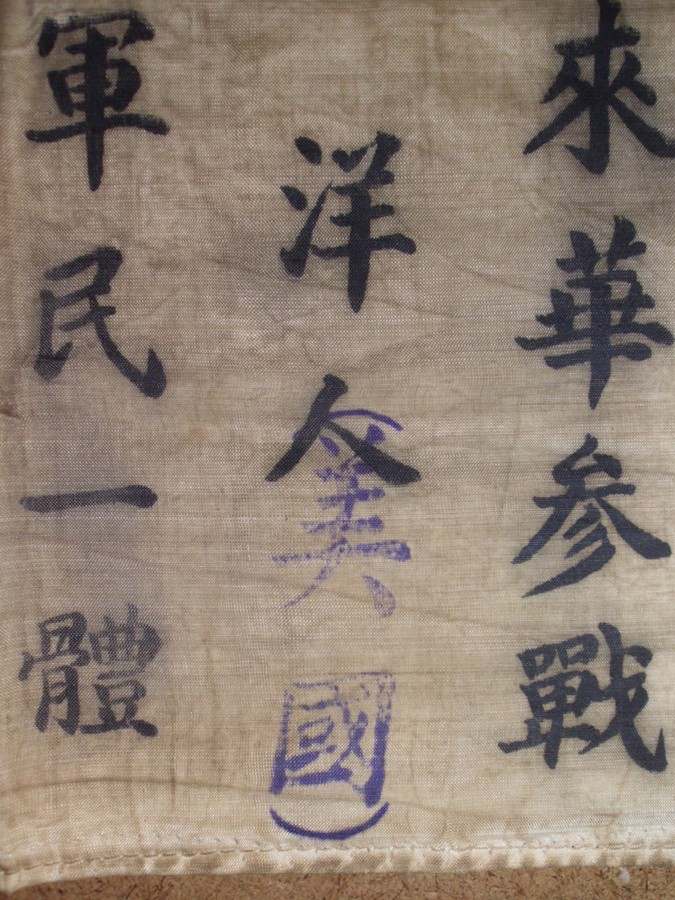 來華參戰
洋人(美國)
軍民一體